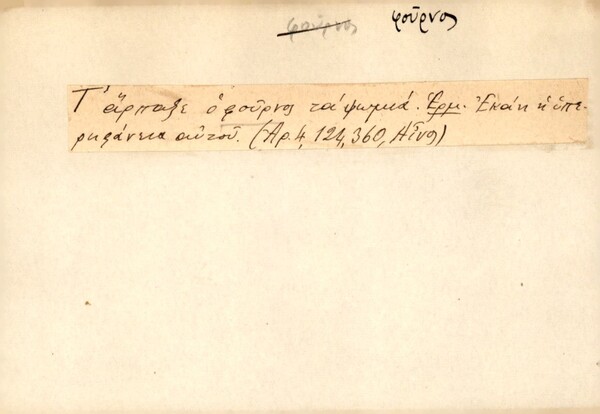 φοῦρνος φοῦρνος
Τ' ἅρπαξε ὁ φοῦρνος τά ψωμιά. Ἑρμ. Ἐκάη ἡ ὑπε-
ρηφάνεια αὐτοῦ. (Αρ. 4, 124, 360, Αἶνος)